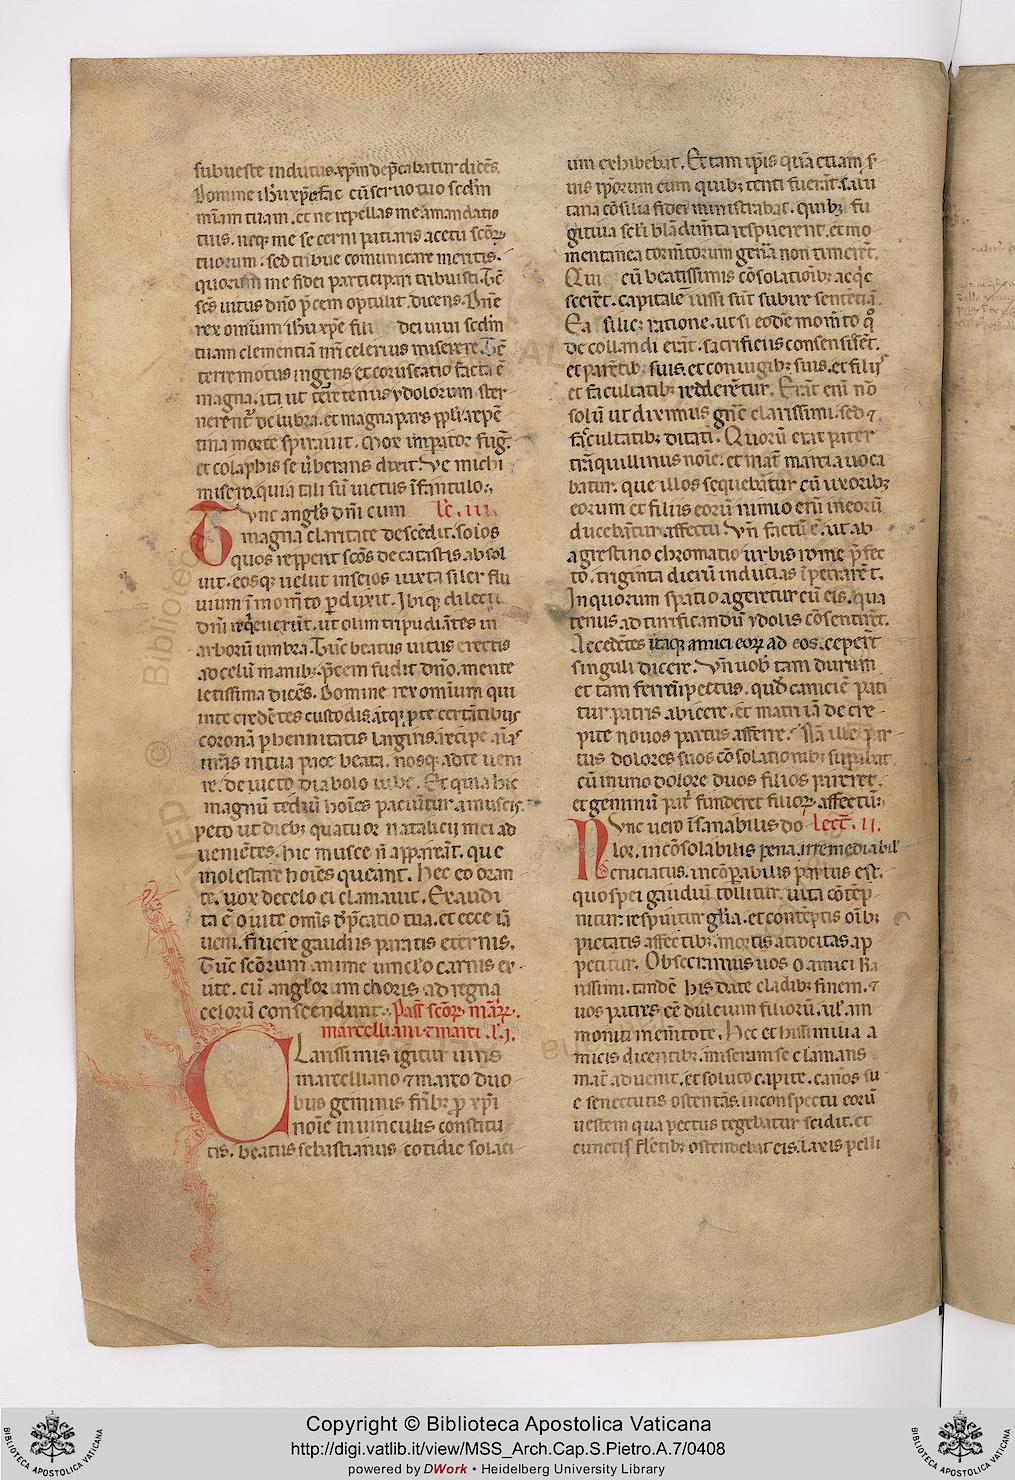 subueste indutus. xpm depcabatur dices.
Domine ihu xpe fac cu seruo tuo sedm
miam tuam. et ne repellas me amandatis
tuis. neqz me se cerni patiaris acetu scoz
tuorum. sed tribue comunicare meritis.
quorum me fidei participari tribuisti. Tc
scs uitus dno pcem optulit. dicens. Dne
rex omium ihu xpe fili dei uiui sedm
tuam clementia nri celerius miserere. Tc
terre motus ingens et coruscatio facta e
magna. ita ut terre tenus ydolorum ster
nerent delubra. et magna pars ppli repe
tina morte spirauit. Mox impator fug.
et colaphis se uberans dixit Ve michi
misero. quia tali su uictus ifantulo.
Tunc angls dni cum Lc. iii.
magna claritate descedit. solos
quos reppерit scos de catastis absol
uit. eosqz uelut inscios iuxta siler flu
uium i momto pduxit. Ibiqz dilecti
dni reqeuerut. ut olim tripudiates in
arboru umbra. Tuc beatus uitus erectis
ad celu manibz. pcem fudit dno. mente
letissima dices. Domine rex omium qui
inte credetes custodis. atqz pte certatibus
corona phennitatis largiris. recipe aias
nras intua pace beata. nosqz adte ueni
re. deuicto diabolo iube. Et quia hic
magnu tediu hoies paciutur amuscis.
peto ut diebz quatuor natalicij mei ad
uenietes. hic musce n appareat. que
molestare hoies queant. Hec eo oran
te. uox decelo ei clamauit. Exaudi
ta e o uite omis dpcatio tua. et ecce ia
ueni. fruere gaudiis paratis eternis.
Tuc scorum anime uinclo carnis ex
ute. cu anglorum choris ad regna
celoru conscendunt. Pass scoz mar.
marcelliani 7 marci. L. j.
Clarissimis igitur uiris
marcelliano 7 marco duo
bus geminis fribz p xpi
noie inuinculis constitu
tis. beatus sebastianus cotidie solaci
um exhibebat. Et tam ipis qua etiam s
uis iporum cum quibz tenti fuerat. salu
tana cosilia fidei ministrabat. quibz fu
gitiua scli bladimta respuerent. et mo
mentanea tormtorum gena non timeret.
Qui cu beatissimis cosolationibz acqe
sceret. capitale iussi sut subire sententia.
Ea silicz ratione. ut si eode momto q
decollandi erat. sacrificiis consensiset.
et paretibz suis. et coniugibz suis. et filijs
et facultatibz redderetur. Erat eni no
solu ut diximus gne clarissimi. sed 7
facultatibz ditati. Quoru erat pater
traquillinus noie. et mat martia uoca
batur. que illos sequebatur cu uxoribz
eorum et filiis eoru nimio eni ineoru
ducebatur affectu. Vn factu e. ut ab
agrestino chromatio urbis rome pfec
to. triginta dieru inducias ipetraret.
In quorum spatio ageretur cu eis. qua
tenus ad turificandu ydolis cosentiret.
Accedetes itaqz amici eoz ad eos. cepert
singuli dicere. Vn uob tam durum
et tam ferreu pectus. quod caniciem pati
tur patris abicere. et matri ia decre
pite nouos partus afferre. Na ille par
tus dolores suos cosolationibz suppabat
cu inuno dolore duos filios pareret.
et geminu patri funderet filioz affectu.
Nunc uero isanabilis do Lect. ii.
lor. incosolabilis pena. irremediabil
cruciatus. incoparabilis partus est.
quo spei gaudiu tollitur. uita cotep
nitur. respuitur gloria. et conteptis oibz
pietatis affectibz. mortis atrocitas ap
petitur. Obsecramus uos o amici ka
rissimi. tande his date cladibz finem. 7
uos patres ee dulcium filioru. ul am
moniti memtote. Hec et hiis similia a
micis dicentibz. miseram se clamans
mat aduenit. et soluto capite. canos su
e senectutis ostentas. inconspectu eoru
uestem qua pectus tegebatur scidit. et
cunctis fletibz ostendebat eis. laxis pelli
Copyright © Biblioteca Apostolica Vaticana
http://digi.vatlib.it/view/MSS_Arch.Cap.S.Pietro.A.7/0408
powered by DWork • Heidelberg University Library
BIBLIOTECA APOSTOLICA VATICANA
BIBLIOTECA APOSTOLICA VATICANA